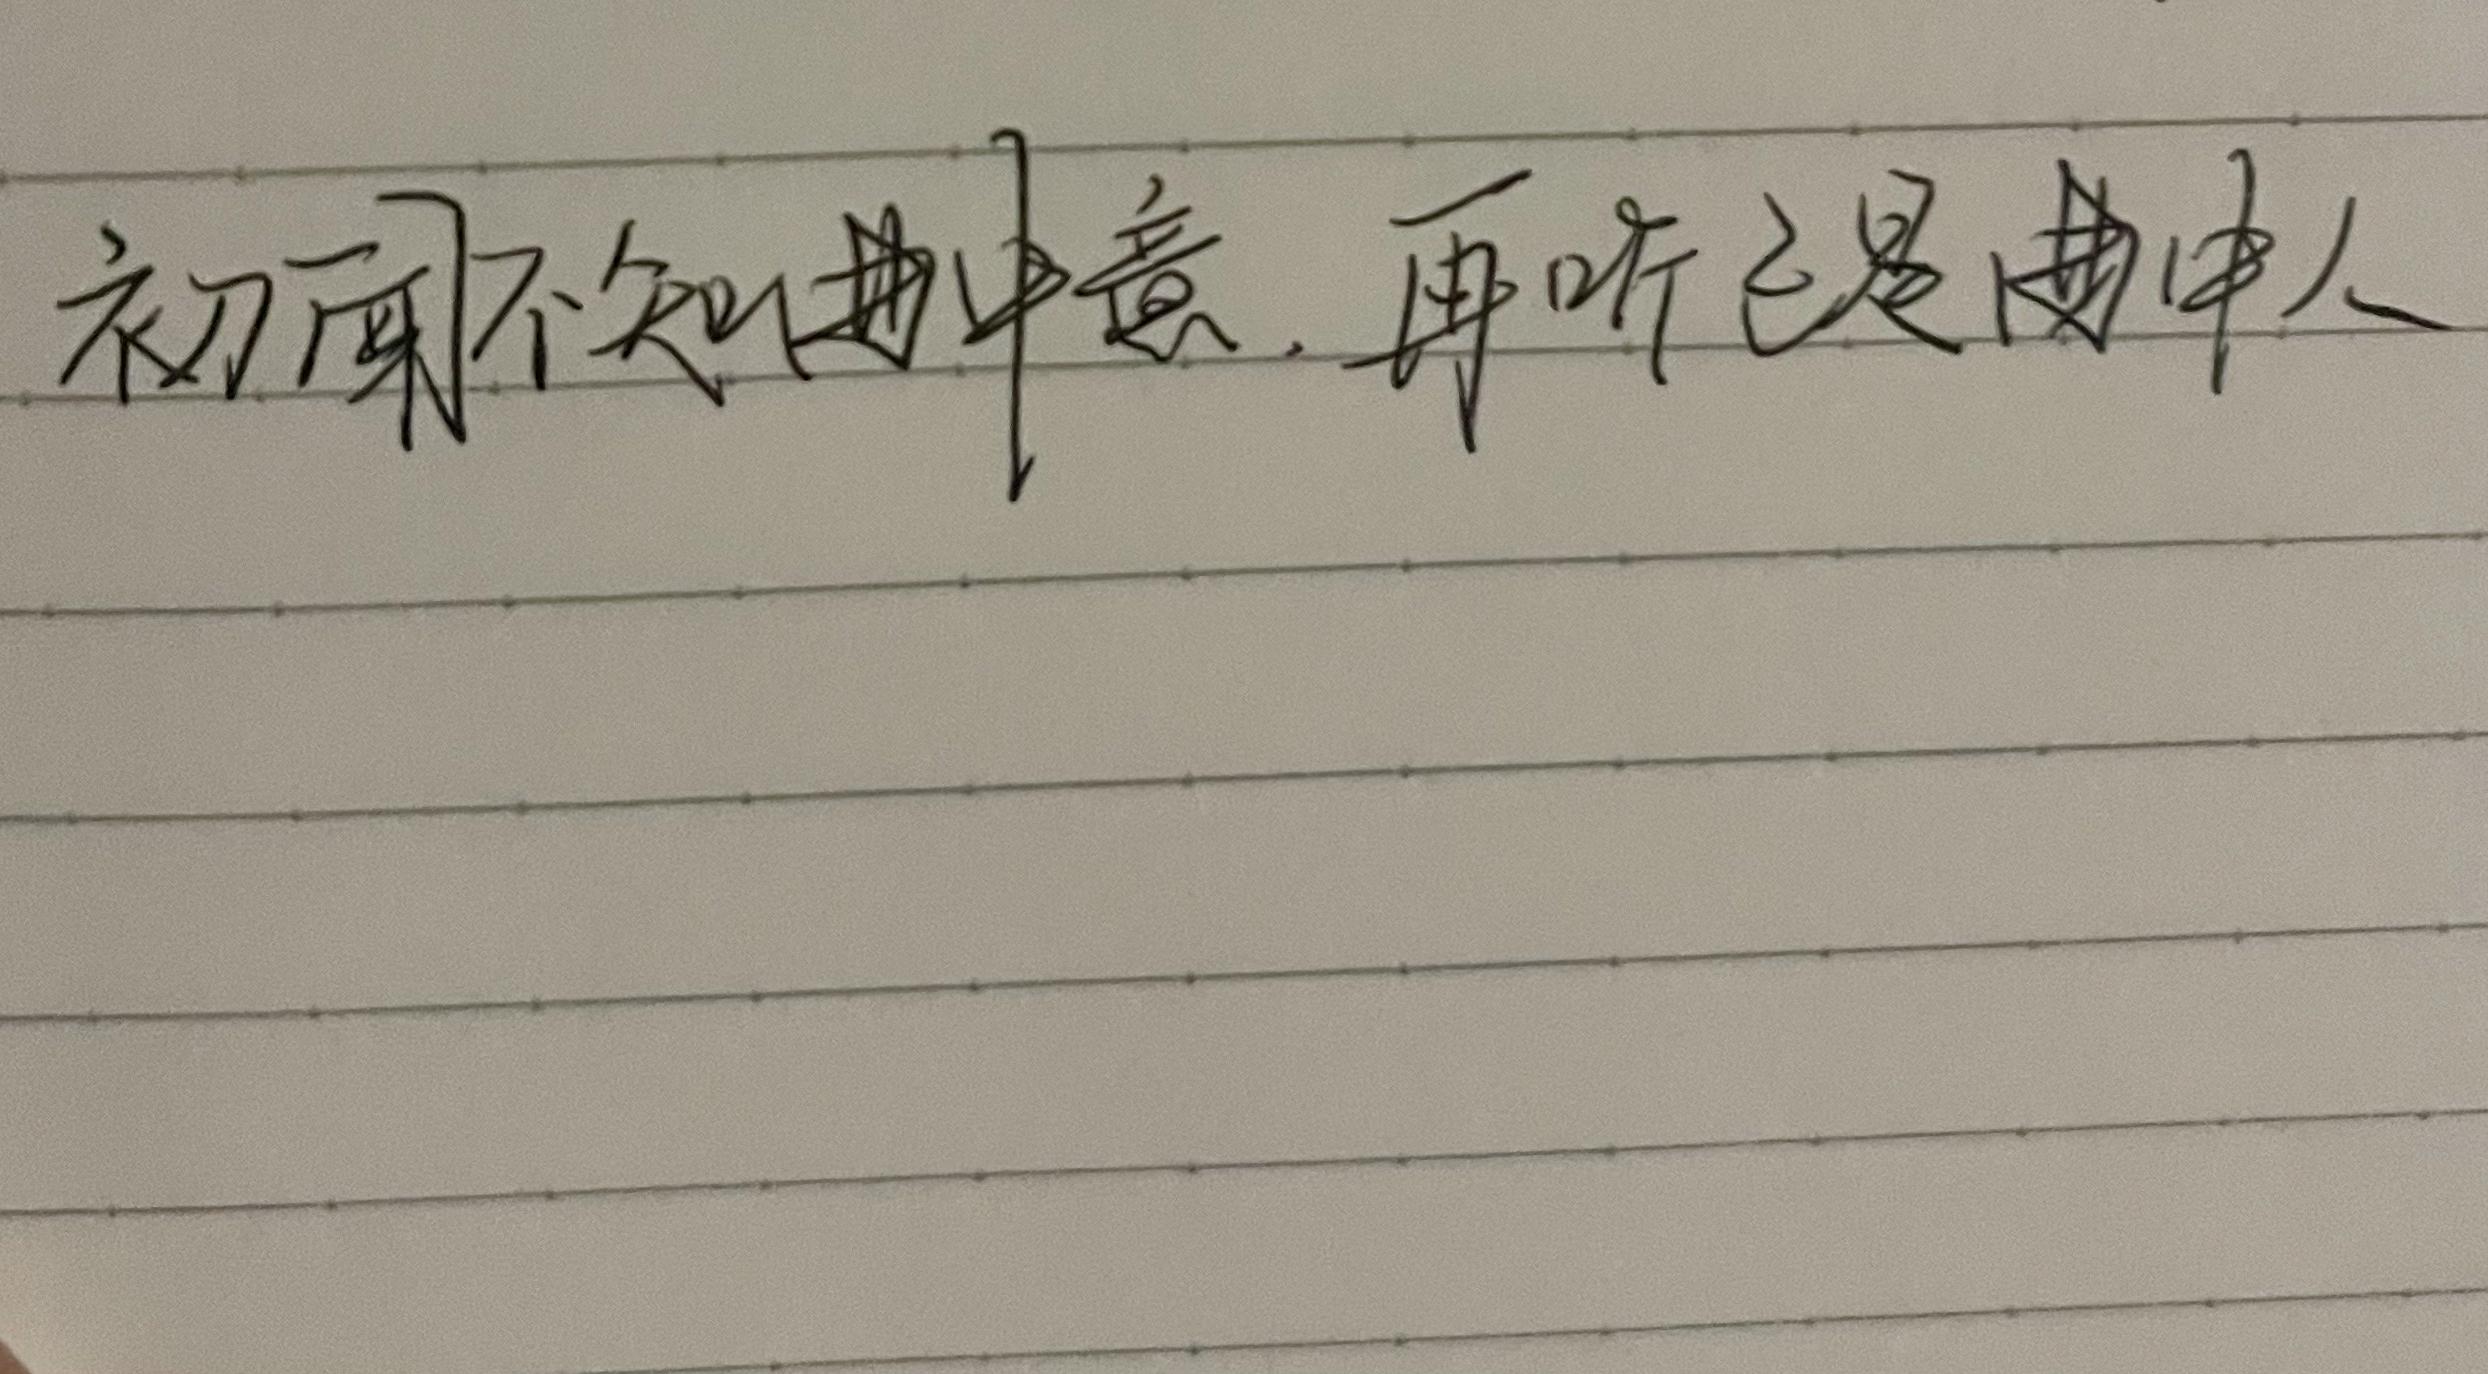 初闻不知曲中意.再听已是曲中人